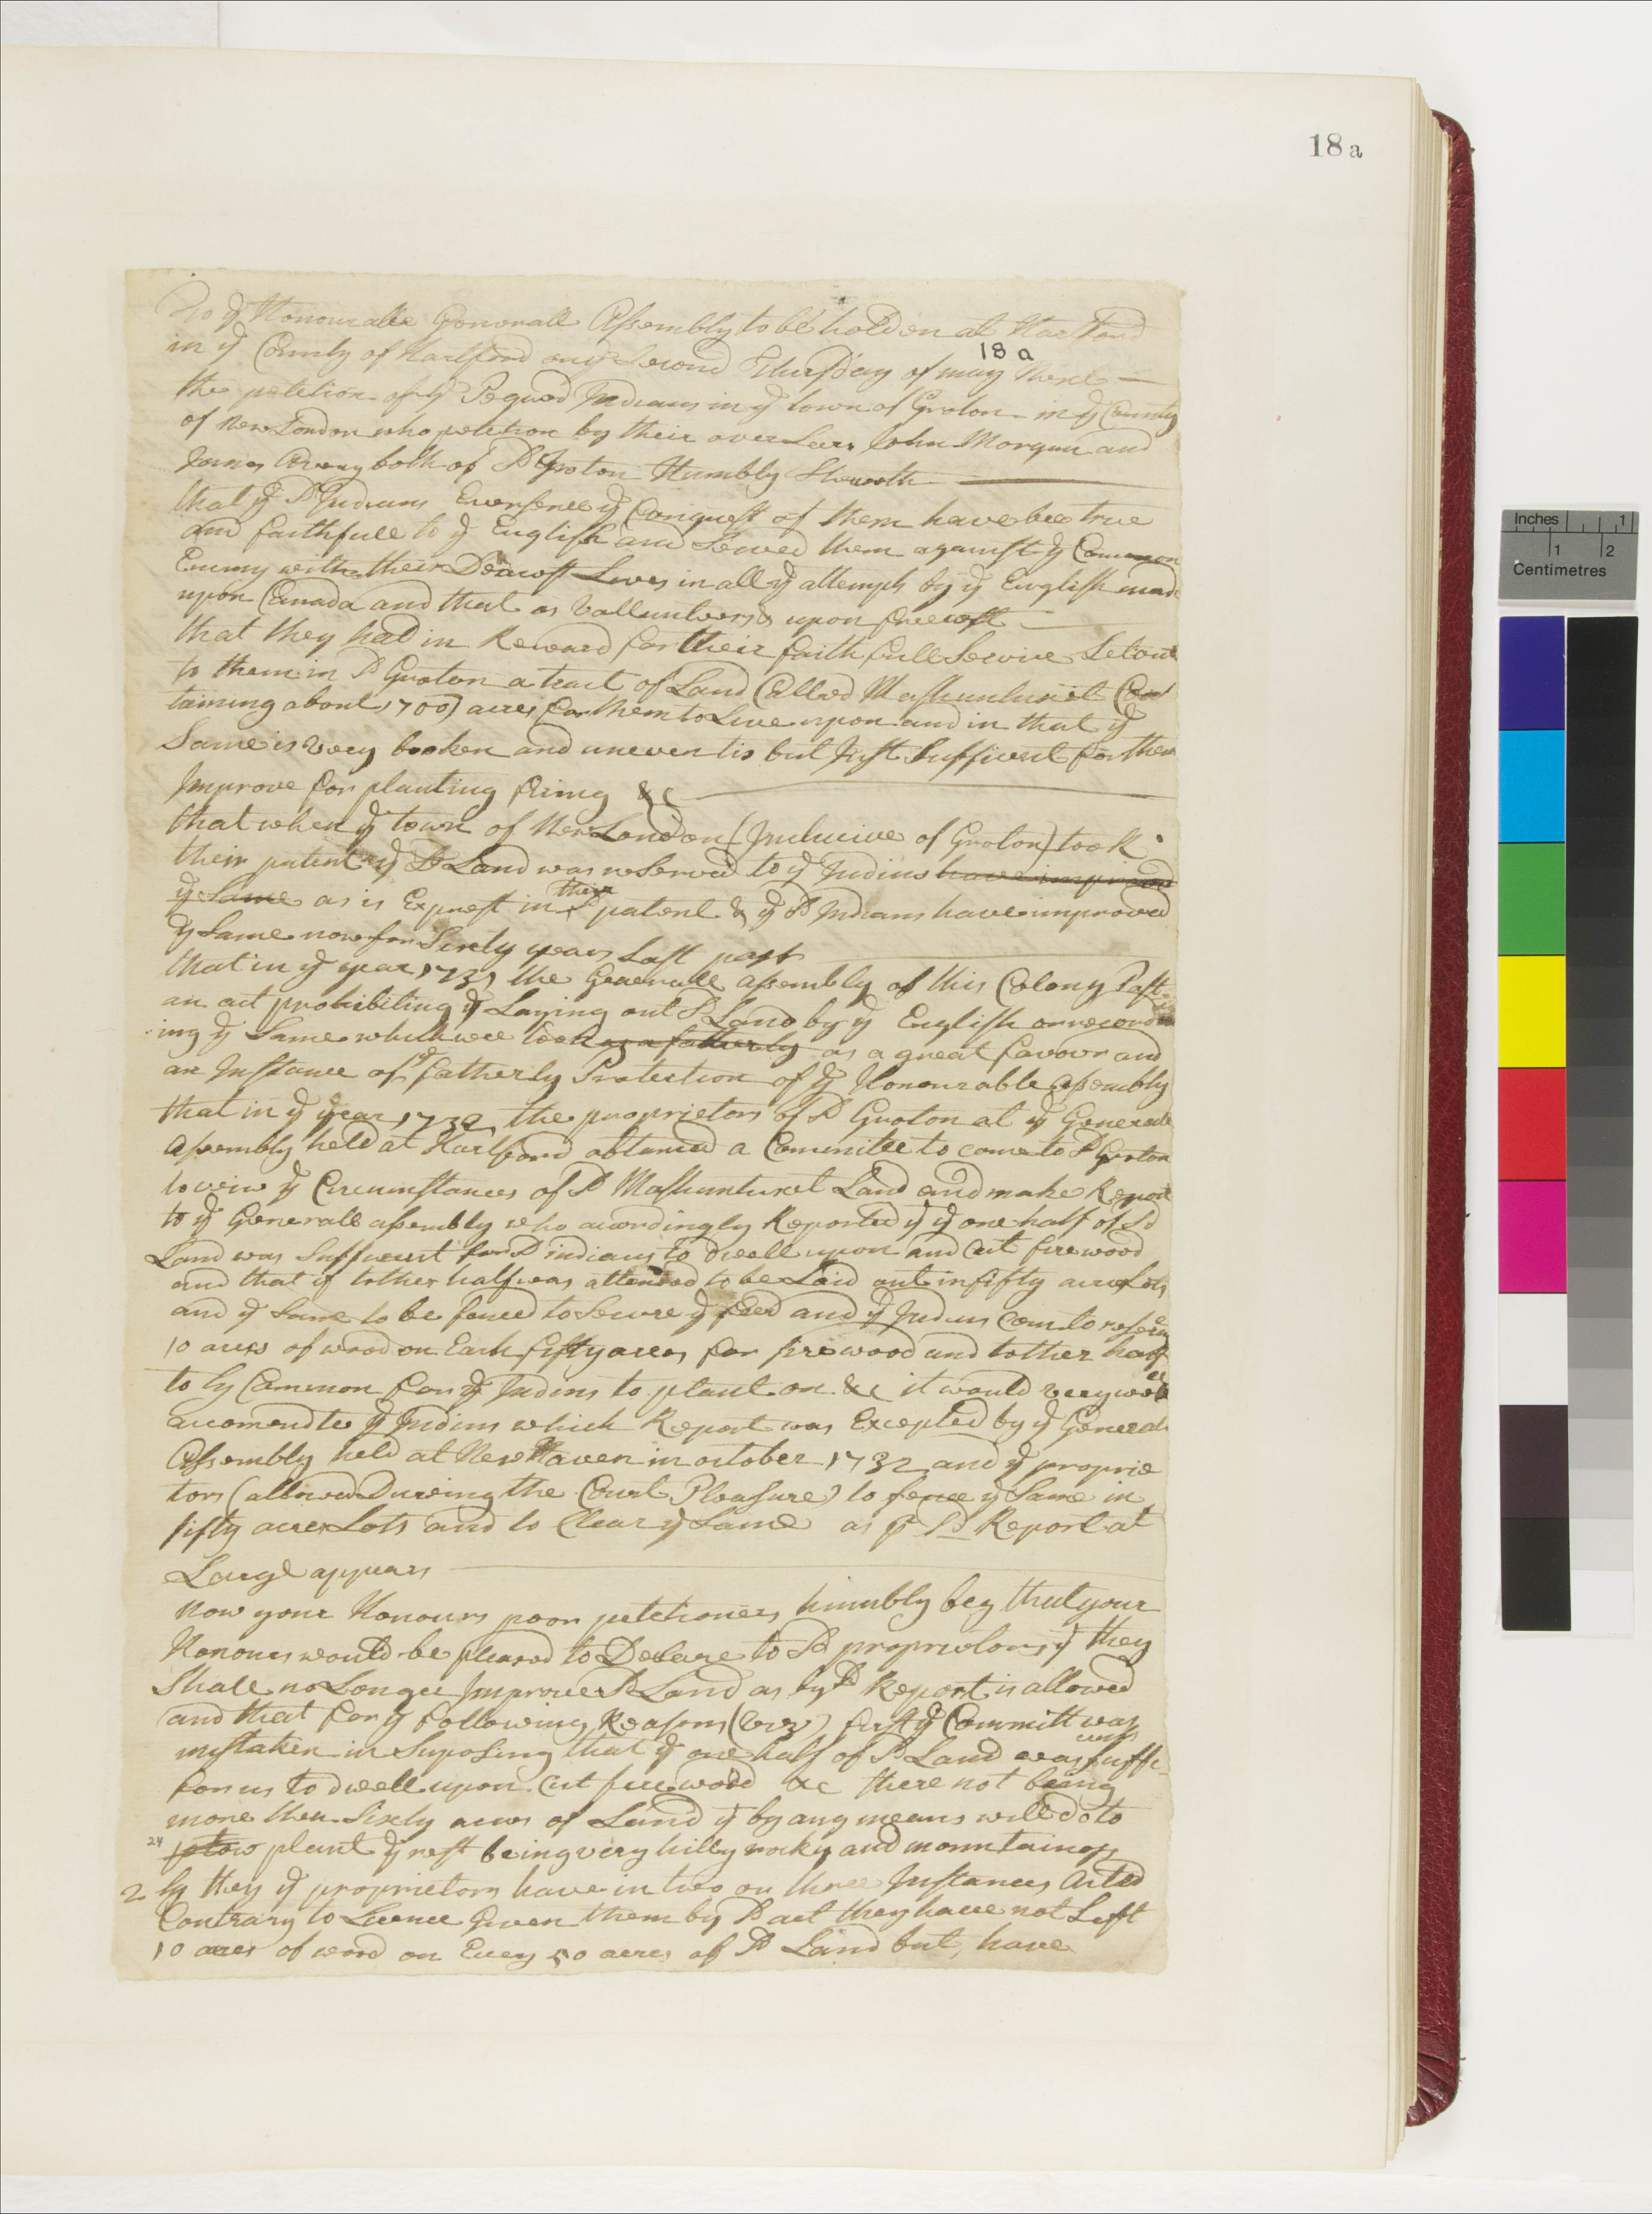 18a
To ye Honourable Generall Assembly to be holden at Hartford
in ye County of Hartford on ye Second Thursday of may Next
18 a
the petition of ye Pequod Indians in ye town of Groton in ye County
of New London who petition by their over Seers John Morgan and
James Avery both of Sd Groton Humbly Sheweth
that ye Sd Indians Ever sence ye Conquest of them have bee true
and faithfull to ye English and Served them against ye Common
Enemy with their Dearest Lives in all ye attempts by ye English made
upon Canada and that as Vallunteers upon free cost
that they had in Reward for their faith full Service Set out
to them in Sd Groton a tract of Land Called Mashuntuxet Con
taining about 1700 acres for them to Live upon and in that ye
Same is Very broken and uneven tis but Just Sufficient for them
Improve for planting fiering &c
that when ye town of New London (Inclucive of Groton) took
their patent ye Sd Land was reServed to ye Indins have improved
ye Same as is Exprest in Sd their patent & ye Sd Indians have improved
ye Same now for Sixty years Last past
that in ye year 1731 the Generall assembly of this Colony Past
an act prohibiting ye Laying out Sd Land by ye English or record
ing ye Same which wee took as a fatherly as a great favour and
an Instance of ye fatherly Protection of ye Honourable assembly
that in ye year 1732 the proprietors of Sd Groton at ye Generall
assembly held at Hartford obtained a Committee to come to Sd Groton
to veiw ye Circumstances of Sd Mashuntuxet Land and make Report
to ye Generall assembly who acordingly Reported yt ye one half of Sd
Land was Suffucent for Sd indians to dwell upon and Cut fire wood
and that if tother half was attended to be Laid out in fifty acre Lots
and ye Same to be fenced to Secure ye feed and ye Indins Corn to reserve
10 acres of wood on Each fifty acres for firewood and tother half
to ly Common for ye Indins to plant on &c it would very well
accomendte ye Indins which Report was Excepted by ye Generall
Assembly held at New Haven in october 1732 and ye proprie
tors (allowed Dureing the Court Pleasure) to fence ye Same in
fifty acre Lots and to Clear ye Same as pr Sd Report at
Large appears
Now your Honours poor petitioners humbly beg that your
Honours would be pleased to Declare to Sd proprietors yt they
Shall no Longer Improve Sd Land as by Sd Report is allowed
and that for ye following Reasons (viz) first ye Committ was
mistaken in Suposing that ye one half of Sd Land was Suffi
for us to dwell upon Cut fire wood &c there not being
more then Sixty acres of Land yt by any means will do to
24 plow plant ye rest being very hilly rocky and mountainoss
2 ly they ye proprietors have in two or three Instances Acted
Contrary to Licence Given them by Sd act they have not Left
10 acres of wood on Every 50 acres of Sd Land but have
Inches 1
1 2
Centimetres